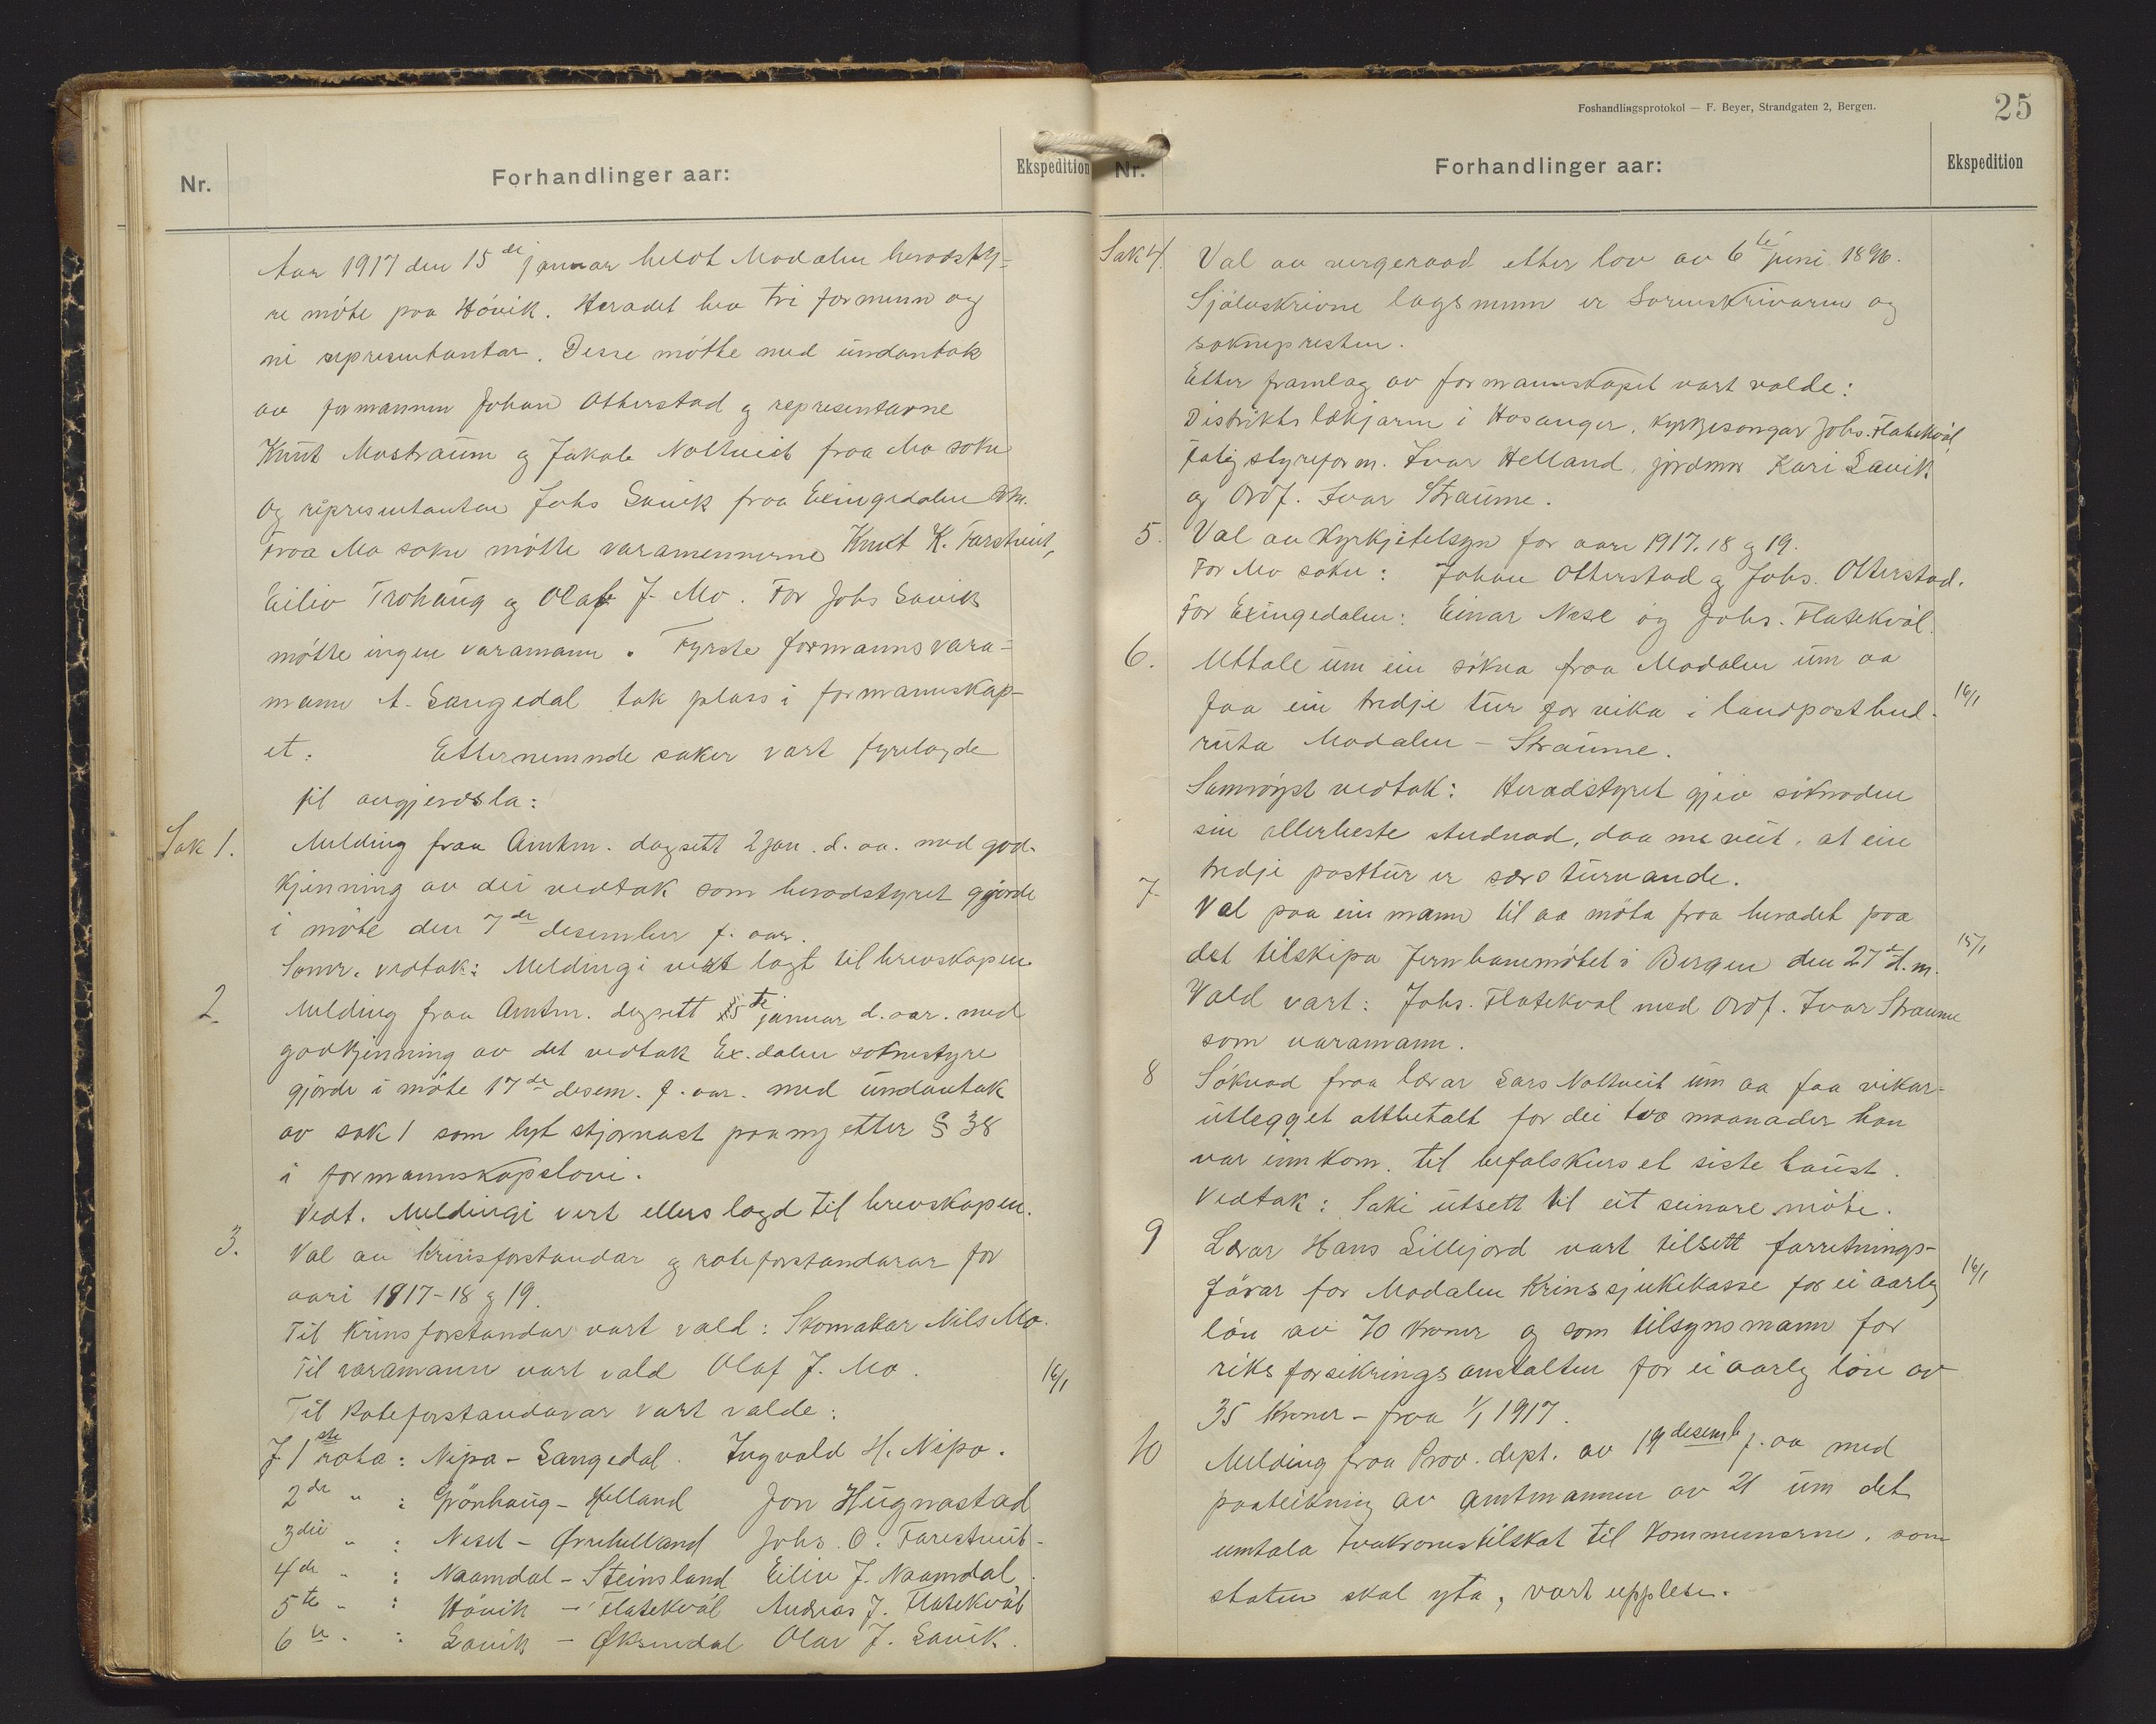 Nr.
Forhandlinger aar:
Ekspedition
Aar 1917 den 15de januar heldt Modalen heradsty-
re möte paa Hövik. Heradet hev tri formenn og
ni representantar. Desse mötte med undantak
av formannen Johan Otterstad og representarne
Knut Mostraum og Jakob Nottveit fraa Mo sokn
og representanten Johs Lavik fraa Exingedalen sokn.
Fraa Mo sokn mötte varamennerne Knut K. Farstveit,
Eiliv Trohaug og Olaf J. Mo. For Johs Lavik
mötte ingen varamann. Fyrste formannsvara-
mann A. Langedal tok plass i formannskap-
et. Etternemnde saker vart fyrelagde
til avgjerdsla:
Sak 1. Melding fraa Amtm. dagsett 2 jan. d. aa. med god-
kjenning av dei vedtak som heradstyret gjorde
i möte den 7de desember f. aar.
Samr. vedtak: Meldingi vert lagt til brevskapen.
2 Melding fraa Amtm. dagsett 5te januar d. aar. med
godkjenning av det vedtak Ex.dalen soknestyre
gjorde i möte 17de desem. f. aar. med undantak
av sak 1 som lyt stjornast paa ny etter § 38
i formannskapslovi.
Vedt. Meldingi vert ellers lagd til brevskapen.
3. Val av krinsforstandar og roteforstandarar for
aari 1917-18 og 19.
Til krinsforstandar vart vald: Skomakar Nils Mo.
Til varamann vart vald Olaf J. Mo.
16/1
Til Roteforstandarar vart valde:
I 1ste rota: Nipa - Langedal. Ingvald H. Nipo.
2de " : Grönhaug - Helland Jon Hugnastad
3die " : Neset - Örnehelland Johs. O. Farestveit.
4de " : Naamdal - Steinsland Eiliv J. Naamdal.
5te " : Hövik - Flatekvål Andreas J. Flatekvål
6te " : Lavik - Øksendal Olav J. Lavik.
Foshandlingsprotokol — F. Beyer, Strandgaten 2, Bergen.
25
Nr.
Forhandlinger aar:
Ekspedition
Sak 4. Val av vergeraad etter lov av 6te juni 1896.
Sjölvskrivne lagsmenn er Sorenskrivaren og
soknepresten.
Etter framlag av formannskapet vart valde:
Distriktslækjaren i Hosanger, kyrkjesongar Johs. Flatekvål,
Fatigstyreform. Ivar Helland, jordmor Kari Lavik
og Ordf. Ivar Straume.
5. Val av Kyrkjetilsyn for aari 1917. 18 og 19.
For Mo sokn: Johan Otterstad og Johs. Otterstad.
For Exingedalen: Einar Nese og Johs. Flatekvål.
6. Uttale um ein söknad fraa Modalen um aa
faa ein tredje tur for vika i landpostbud-
16/1
ruta Modalen - Straume.
Samröyst vedtak: Heradstyret gjev söknaden
sin allerbeste studnad, daa me veit, at ein
tredje posttur er særs turvande.
7. Val paa ein mann til aa möta fraa heradet paa
det tilskipa Jernbanemötet i Bergen den 27de d.m.
15/1
Vald vart: Johs. Flatekval med Ordf. Ivar Straume
som varamann.
8 Söknad fraa lærar Lars Nottveit um aa faa vikar-
utlegget attbetalt for dei tvo maanader han
var innkom. til befalskurset siste haust.
Vedtak: Saki utsett til eit seinare möte.
9 Lærar Hans Lillejord vart tilsett forretnings-
förar for Modalen krinssjukekasse for ei aarleg
16/1
lön av 70 kroner og som tilsynsmann for
riksforsikringsanstalten for ei aarleg lön av
35 kroner - fraa 1/1 1917.
10 Melding fraa Prov. dept. av 19 desemb f. aa med
paateikning av amtmannen av 21 um det
umtala tvokronestilskot til kommunerne, som
staten skal yta, vart upplese.